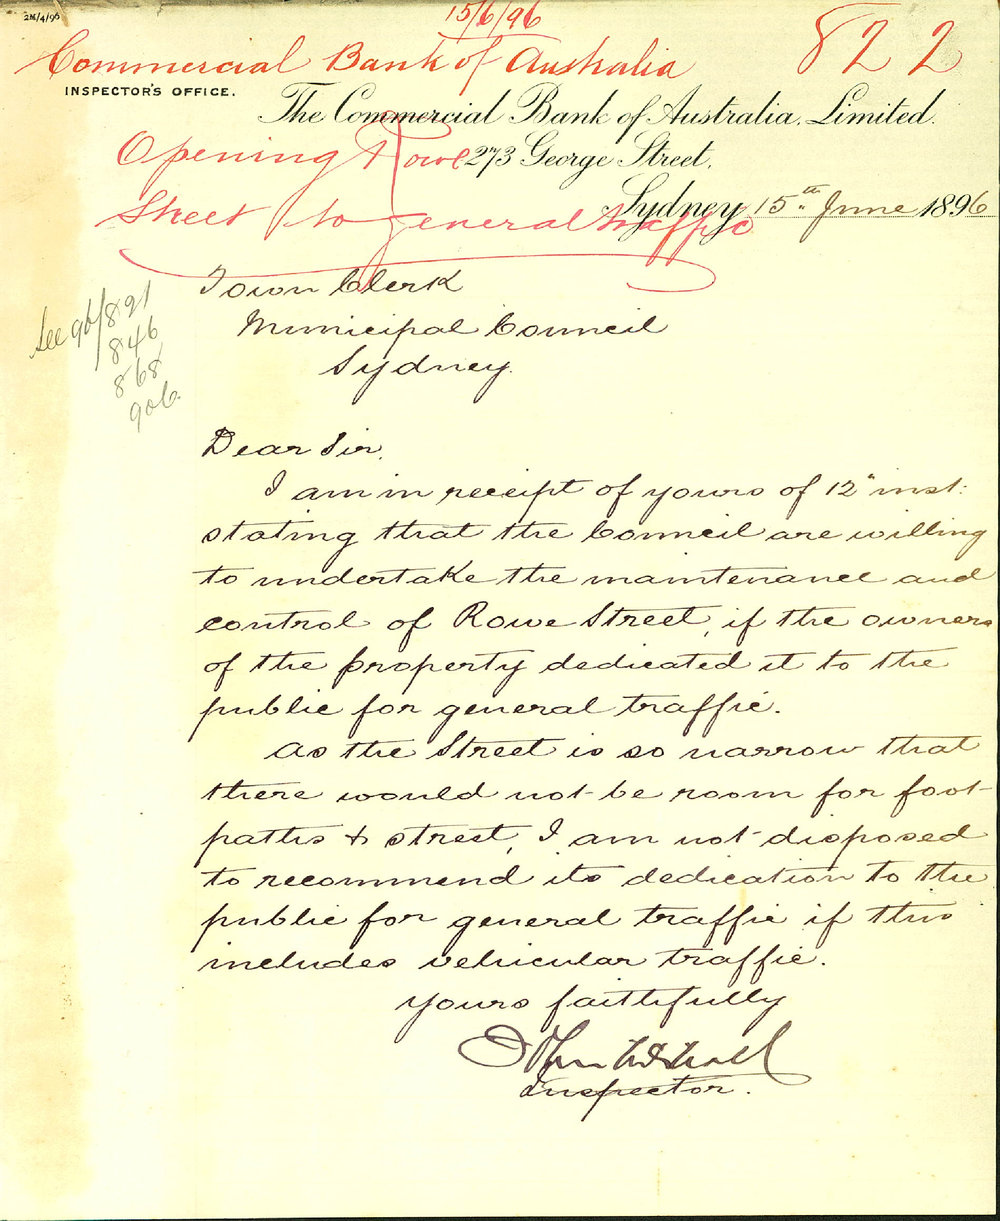 2M/4/96
15/6/96
Commercial Bank of Australia
822
INSPECTOR'S OFFICE.
The Commercial Bank of Australia, Limited.
Opening Rowe
273 George Street,
Street to general traffic
Sydney 15th June 1896
See 96/821
846
868
906
Town Clerk
Municipal Council
Sydney.
Dear Sir,
I am in receipt of yours of 12" inst:
stating that the Council are willing
to undertake the maintenance and
control of Rowe Street, if the owners
of the property dedicated it to the
public for general traffic.
As the Street is so narrow that
there would not be room for foot-
paths & street, I am not disposed
to recommend its dedication to the
public for general traffic if this
includes vehicular traffic.
Yours faithfully
John
Inspector.